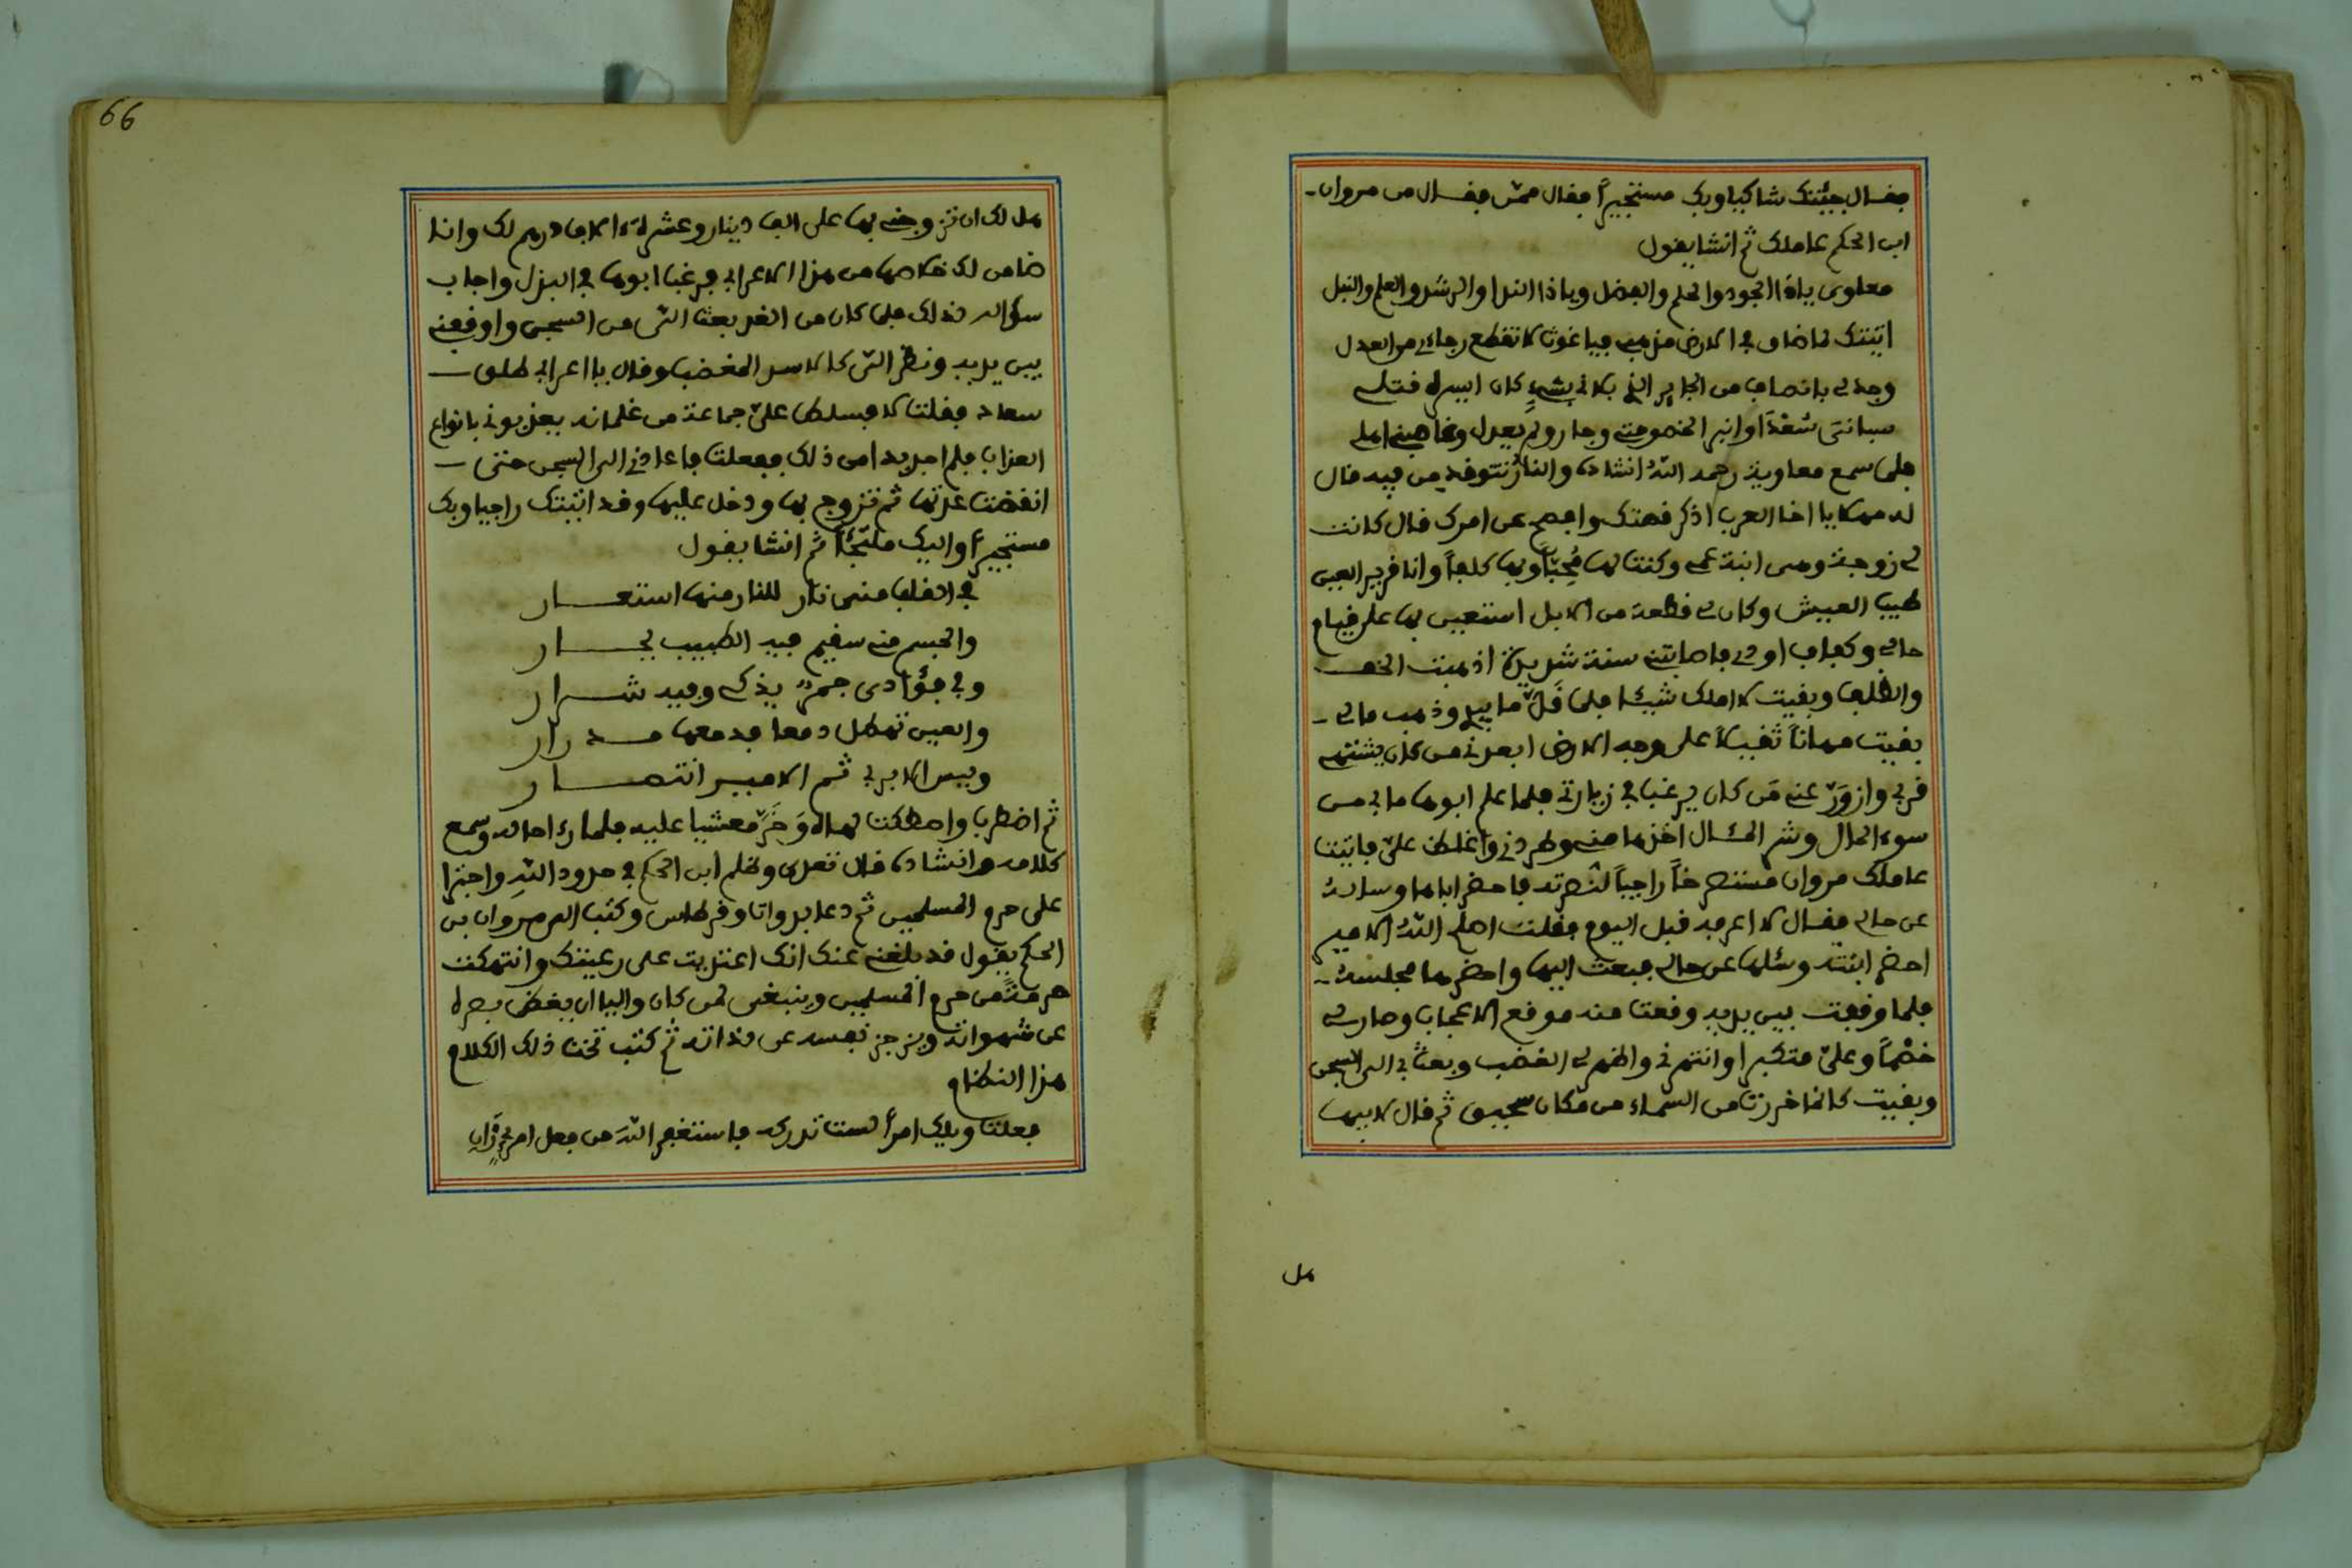 فقال جئتك شاكيا وبك مستجيراً فقال ممّن فقال من مروان
ابن الحكم عاملك ثم انشا يقول
معاوى ياذا الجود والحلم والفضل وياذا الندا والرشد والعلم والنبل
اتيتك لما ضاق في الارض مذهبي فيا غوث لا تقطع رجاءي من العدل
وجد لي بانصاف من الجاير الذي بلاني بشيءٍ كان ايسره قتلي
سباني سُعْدَا وانبر الخصومتي وجار ولم يعدل وغاصبني اهلي
فلما سمع معاوية رحمه اللهُ انشاده والنارُ تتوقد من فيه قال
له مهلا يا اخا العرب اذكر قصتك وافصح عن امرك قال كانت
لي زوجة وهى ابنة عمي وكنت لها مُحِبّاً وبها كلفاً وانا قرير العين
طيب العيش وكان لي قطعة من الابل استعين بها على قيام
حالي وكفاف اودي فاصابتنى سنة شديدة اذهبت الخف
والظلف وبقيت لا املك شيئا فلما قَلّ ما بيدي وذهب مالي
بقيت مهاناً ثقيلاً على وجه الارض ابعدني من كان يشتهي
قربي وازورّ عني مَن كان يرغب في زيارتي فلما علم ابوها ما بي من
سوء الحال وشر المئال اخذها مني وطردني واغلظ عليّ فاتيت
عاملك مروان مستصرخاً راجياً لنصرته فاحضر اباها وساله
عن حالي فقال لا اعرفه قبل اليوم فقلت اصلح اللهُ الامير
احضر ابنته وسئلها عن حالي فبعث اليها واحضرها مجلسه
فلما وقفت بين يديه وقعت منه موقع الاعجاب وصار لي
خصْماً وعليّ متكبرا وانتهرني واظهر لي الغضب وبعث بي الى السجن
وبقيت كانما خررت من السماء من مكان سحيق ثم قال لابيها
هل
66
هل لك ان تزوجني بها على الف دينار وعشرة الاف درهم لك وانا
ضامن لك خلاصها من هذا الاعرابي فرغب ابوها في البذل واجاب
سؤاله لذلك فلما كان من الغد بعث الىّ من السجن واوقفني
بين يديه ونظر الىّ كالاسد المغضب وقال يا اعرابي طلق
سعاد فقلت لا فسلط عليّ جماعة من غلمانه يعذبوني بانواع
العذاب فلم اجد بدا من ذلك ففعلت فاعادني الى السجن حتى
انقضت عدتها ثم تزوج بها ودخل عليها وقد اتيتك راجيا وبك
مستجيراً واليك ملتجأً ثم انشا يقول
في القلب منى نار للنار منها استعار
والجسم مني سقيم فيه الطبيب يحار
وفي فؤادى جمر يذكي وفيه شرار
والعين تهطل دمعا فدمعها مدرار
وليس الا بربي ثم الامير انتصار
ثم اضطرب واصطكت لهاه وَخَرّ مغشيا عليه فلما رءا حاله وسمع
كلامه وانشاده قال تعدى وظلم ابن الحكم في حدود اللهِ واجترا
على حرم المسلمين ثم دعا بدوات وقرطاس وكتب الى مروان بن
الحكم يقول قد بلغني عنك انك اعتديت على رعيتك وانتهكت
حرمةً من حرم المسلمين وينبغى لمن كان واليا ان يغض بصره
عن شهواته ويزجر نفسه عن لذاته ثم كتب تحت ذلك الكلام
هذا النظام
فعلت ويلك امرأ لست تدركه فاستغفر اللهَ من فعل امرءٍ زان